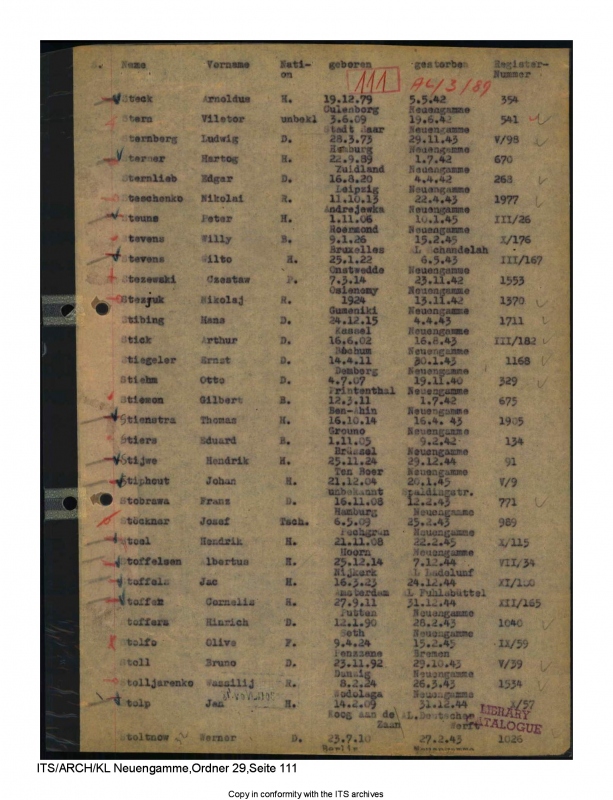 Name Vorname Nati- geboren gestorben Register-
on Nummer
111 AL/3/89
Steck Arnoldus H. 19.12.79 5.5.42 354
Culenborg Neuengamme
Stern Viletor unbekl 3.6.09 19.6.42 541
Stadt Saar Neuengamme
Sternberg Ludwig D. 28.3.73 29.11.43 V/98
Homburg Neuengamme
Sterner Hartog H. 22.9.89 1.7.42 670
Zuidland Neuengamme
Sternlieb Edgar D. 16.8.20 4.4.42 268
Leipzig Neuengamme
Steschenko Nikolai H. 11.10.13 22.4.43 1977
Andrejewka Neuengamme
Steuns Peter H. 1.11.06 10.1.45 III/26
Roermond Neuengamme
Stevens Willy B. 9.1.26 15.2.45 X/176
Bruxelles AL Schandelah
Stevens Wilto H. 25.1.22 6.5.43 III/167
Onstwedde Neuengamme
Stezewski Czestaw P. 7.3.14 23.11.42 1553
Osienomy Neuengamme
Stezjuk Nikolaj R. 1924 13.11.42 1370
Gumeniki Neuengamme
Stibing Hans D. 24.12.15 4.4.43 1711
Kassel Neuengamme
Stick Arthur D. 16.6.02 16.8.43 III/182
Bochum Neuengamme
Stiegeler Ernst D. 14.4.11 30.1.43 1168
Domberg Neuengamme
Stiehm Otto D. 4.7.07 19.11.40 329
Printenthal Neuengamme
Stiewon Gilbert B. 12.3.11 1.7.42 675
Ben-Ahin Neuengamme
Stienstra Thomas H. 16.10.14 16.4. 43 1905
Grouno Neuengamme
Stiers Eduard B. 1.11.05 9.2.42 134
Brüssel Neuengamme
Stijwe Hendrik H. 25.11.24 29.12.44 91
Ten Boer Neuengamme
Stiphout Johan H. 21.12.04 20.1.45 V/9
unbekannt Spaldingstr.
Stobrawa Franz D. 16.11.08 12.2.43 771
Hamburg Neuengamme
Stöcknar Josef Tsch. 6.5.09 25.2.43 989
Pochgrün Neuengamme
Stoel Hendrik H. 21.11.08 22.2.45 X/115
Hoorn Neuengamme
Stoffelsen Albertus H. 25.12.14 7.12.44 VII/34
Nijkerk KL Ladelund
Stoffels Jac H. 16.3.23 24.12.44 XI/100
Amsterdam KL Fuhlsbüttel
Stoffen Cornelis H. 27.9.11 31.12.44 XII/165
Putten Neuengamme
Stoffers Hinrich D. 12.1.90 26.2.43 1040
Seth Neuengamme
Stolfo Olive F. 9.4.24 15.2.45 IX/59
Penzzane Bremen
Stoll Bruno D. 23.11.92 29.10.43 V/39
Danzig Neuengamme
Stolljarenko Wassilij R. 8.2.24 26.3.43 1534
Rodolaga Neuengamme
Stolp Jan H. 14.2.09 31.12.44 X/57
Koog aan de AL.Deutsche
Zaan Werft
LIBRARY
CATALOGUE
Stoltnow Werner D. 23.7.10 27.2.43 1026
Berlin Neuengamme
ITS/ARCH/KL Neuengamme,Ordner 29,Seite 111
Copy in conformity with the ITS archives